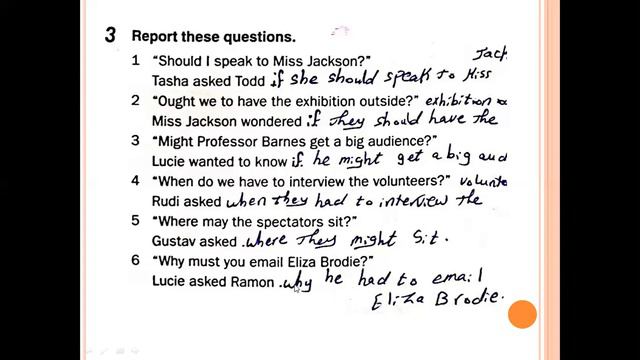 3 Report these questions.
1 "Should I speak to Miss Jackson?" Jack
Tasha asked Todd if she should speak to Miss
2 "Ought we to have the exhibition outside?" exhibition
Miss Jackson wondered if they should have the
3 "Might Professor Barnes get a big audience?"
Lucie wanted to know if he might get a big aud
4 "When do we have to interview the volunteers?" volunte
Rudi asked when they had to interview the
5 "Where may the spectators sit?"
Gustav asked .where they might sit.
6 "Why must you email Eliza Brodie?"
Lucie asked Ramon .why he had to email
Eliza Brodie.